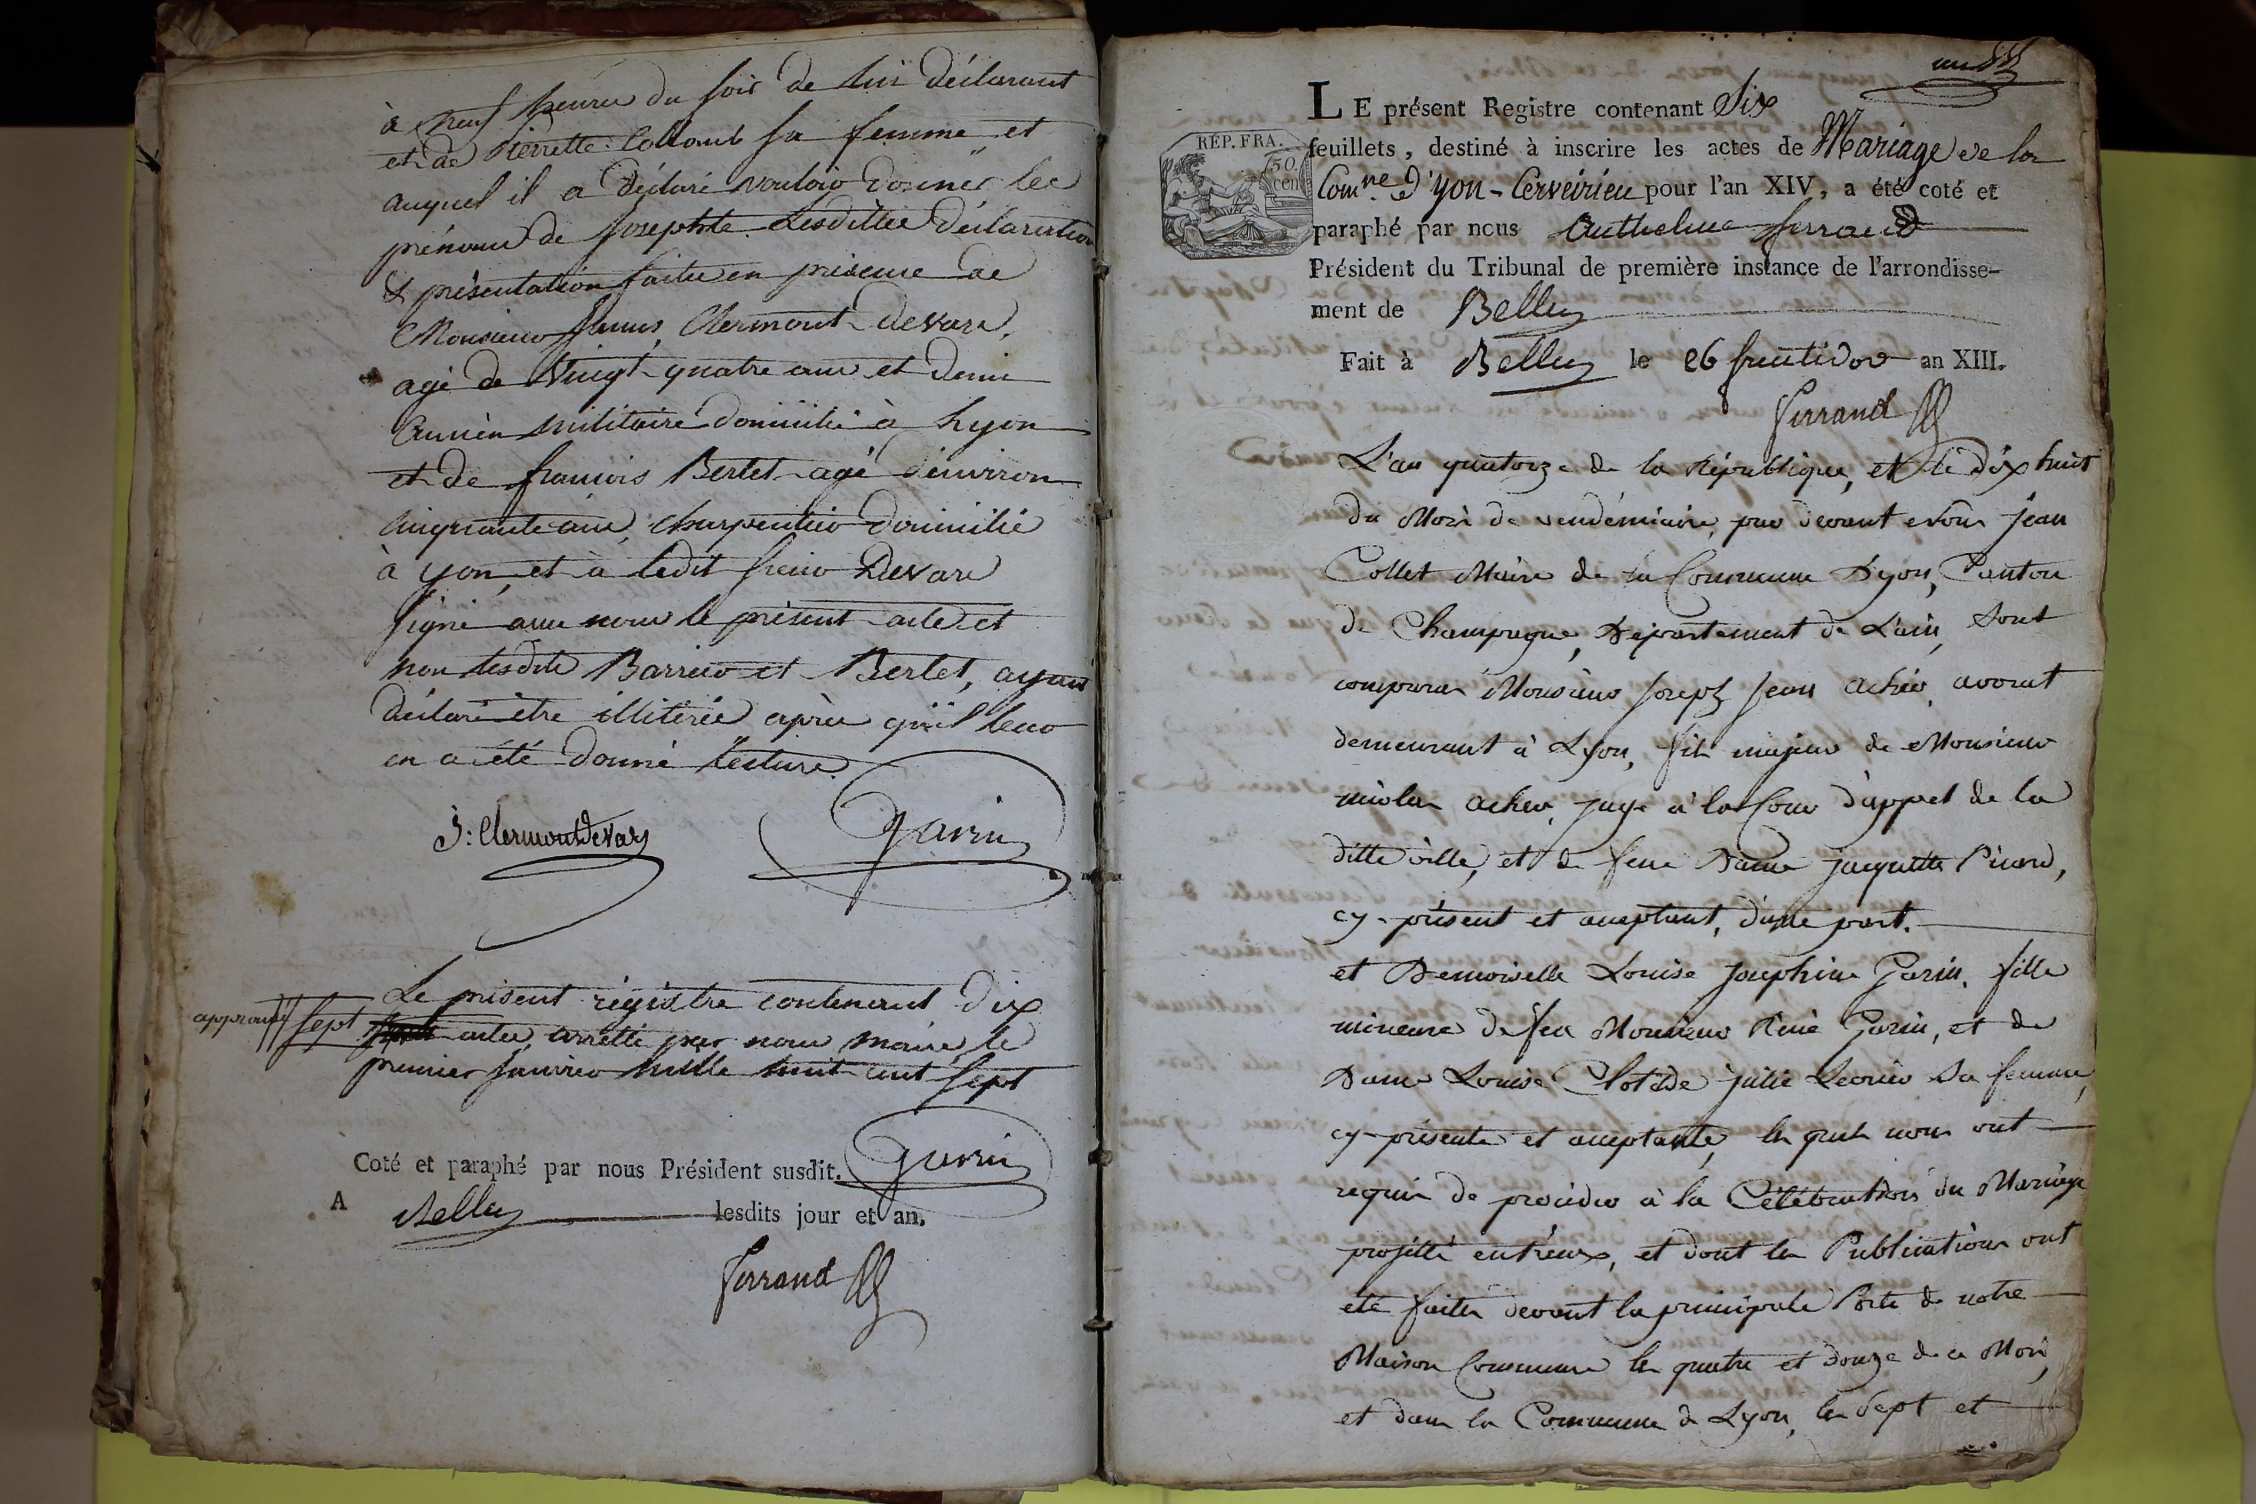 à neuf heures du soir de lui déclarant
et de Pierrette Collomb sa femme et
auquel il a déclaré vouloir donner les
prénoms de Josephte. Lesdittes déclaration
& présentation faites en présence de
Monsieur James Clermont Devars,
agé de vingt quatre ans et demi
ancien militaire domicilié à Lyon
et de françois Berlet agé d'environ
cinquante ans, charpentier domicilié
à yon, et à ledit sieur Devars
signé avec nous le présent acte et
non lesdits Barrier et Berlet, ayant
déclaré être illitérés après qu'il leur
en a été donné lecture.
J: Clermont Devars
Garin
Le présent régistre contenant dix
approuvé sept
actes, arretté par nous maire le
premier Janvier mille huit cent sept
Garin
Coté et paraphé par nous Président susdit.
A Belley lesdits jour et an.
Ferrand
LE présent Registre contenant Six
REP. FRA.
50.
cen
feuillets, destiné à inscrire les actes de Mariage de la
Comne. d'yon-Cerveirieu pour l'an XIV, a été coté et
paraphé par nous Anthelme Ferrand
Président du Tribunal de première instance de l'arrondisse-
ment de Belley
Fait à Belley le 26 fructidor an XIII.
Ferrand
L'an quatorze de la République, et le dix huit
du Mois de vendémiaire, par devant Nous jean
Collet Maire de la Commune D'yon, Canton
de Champagne, Département de L'ain, Sont
comparus Monsieur Joseph Jean Acher, avocat
demeurant à Lyon, fils majeur de Monsieur
nicolas Acher, juge à la Cour d'appel de la
ditte ville, et de feue Dame jaquette Picard,
cy-présent et acceptant, d'une part.
et Demoiselle Louise Josephine Garin, fille
mineure de feu Monsieur Réné Garin, et de
Dame Louise Clotilde julie Sa femme,
cy-présente et acceptante, les quels nous ont
requis de procéder à la Célébration du Mariage
projetté entr'eux, et dont les Publications ont
été faites devant la principale Porte de notre
Maison Commune les quatre et douze de ce Mois,
et dans la Commune de Lyon, les Sept et